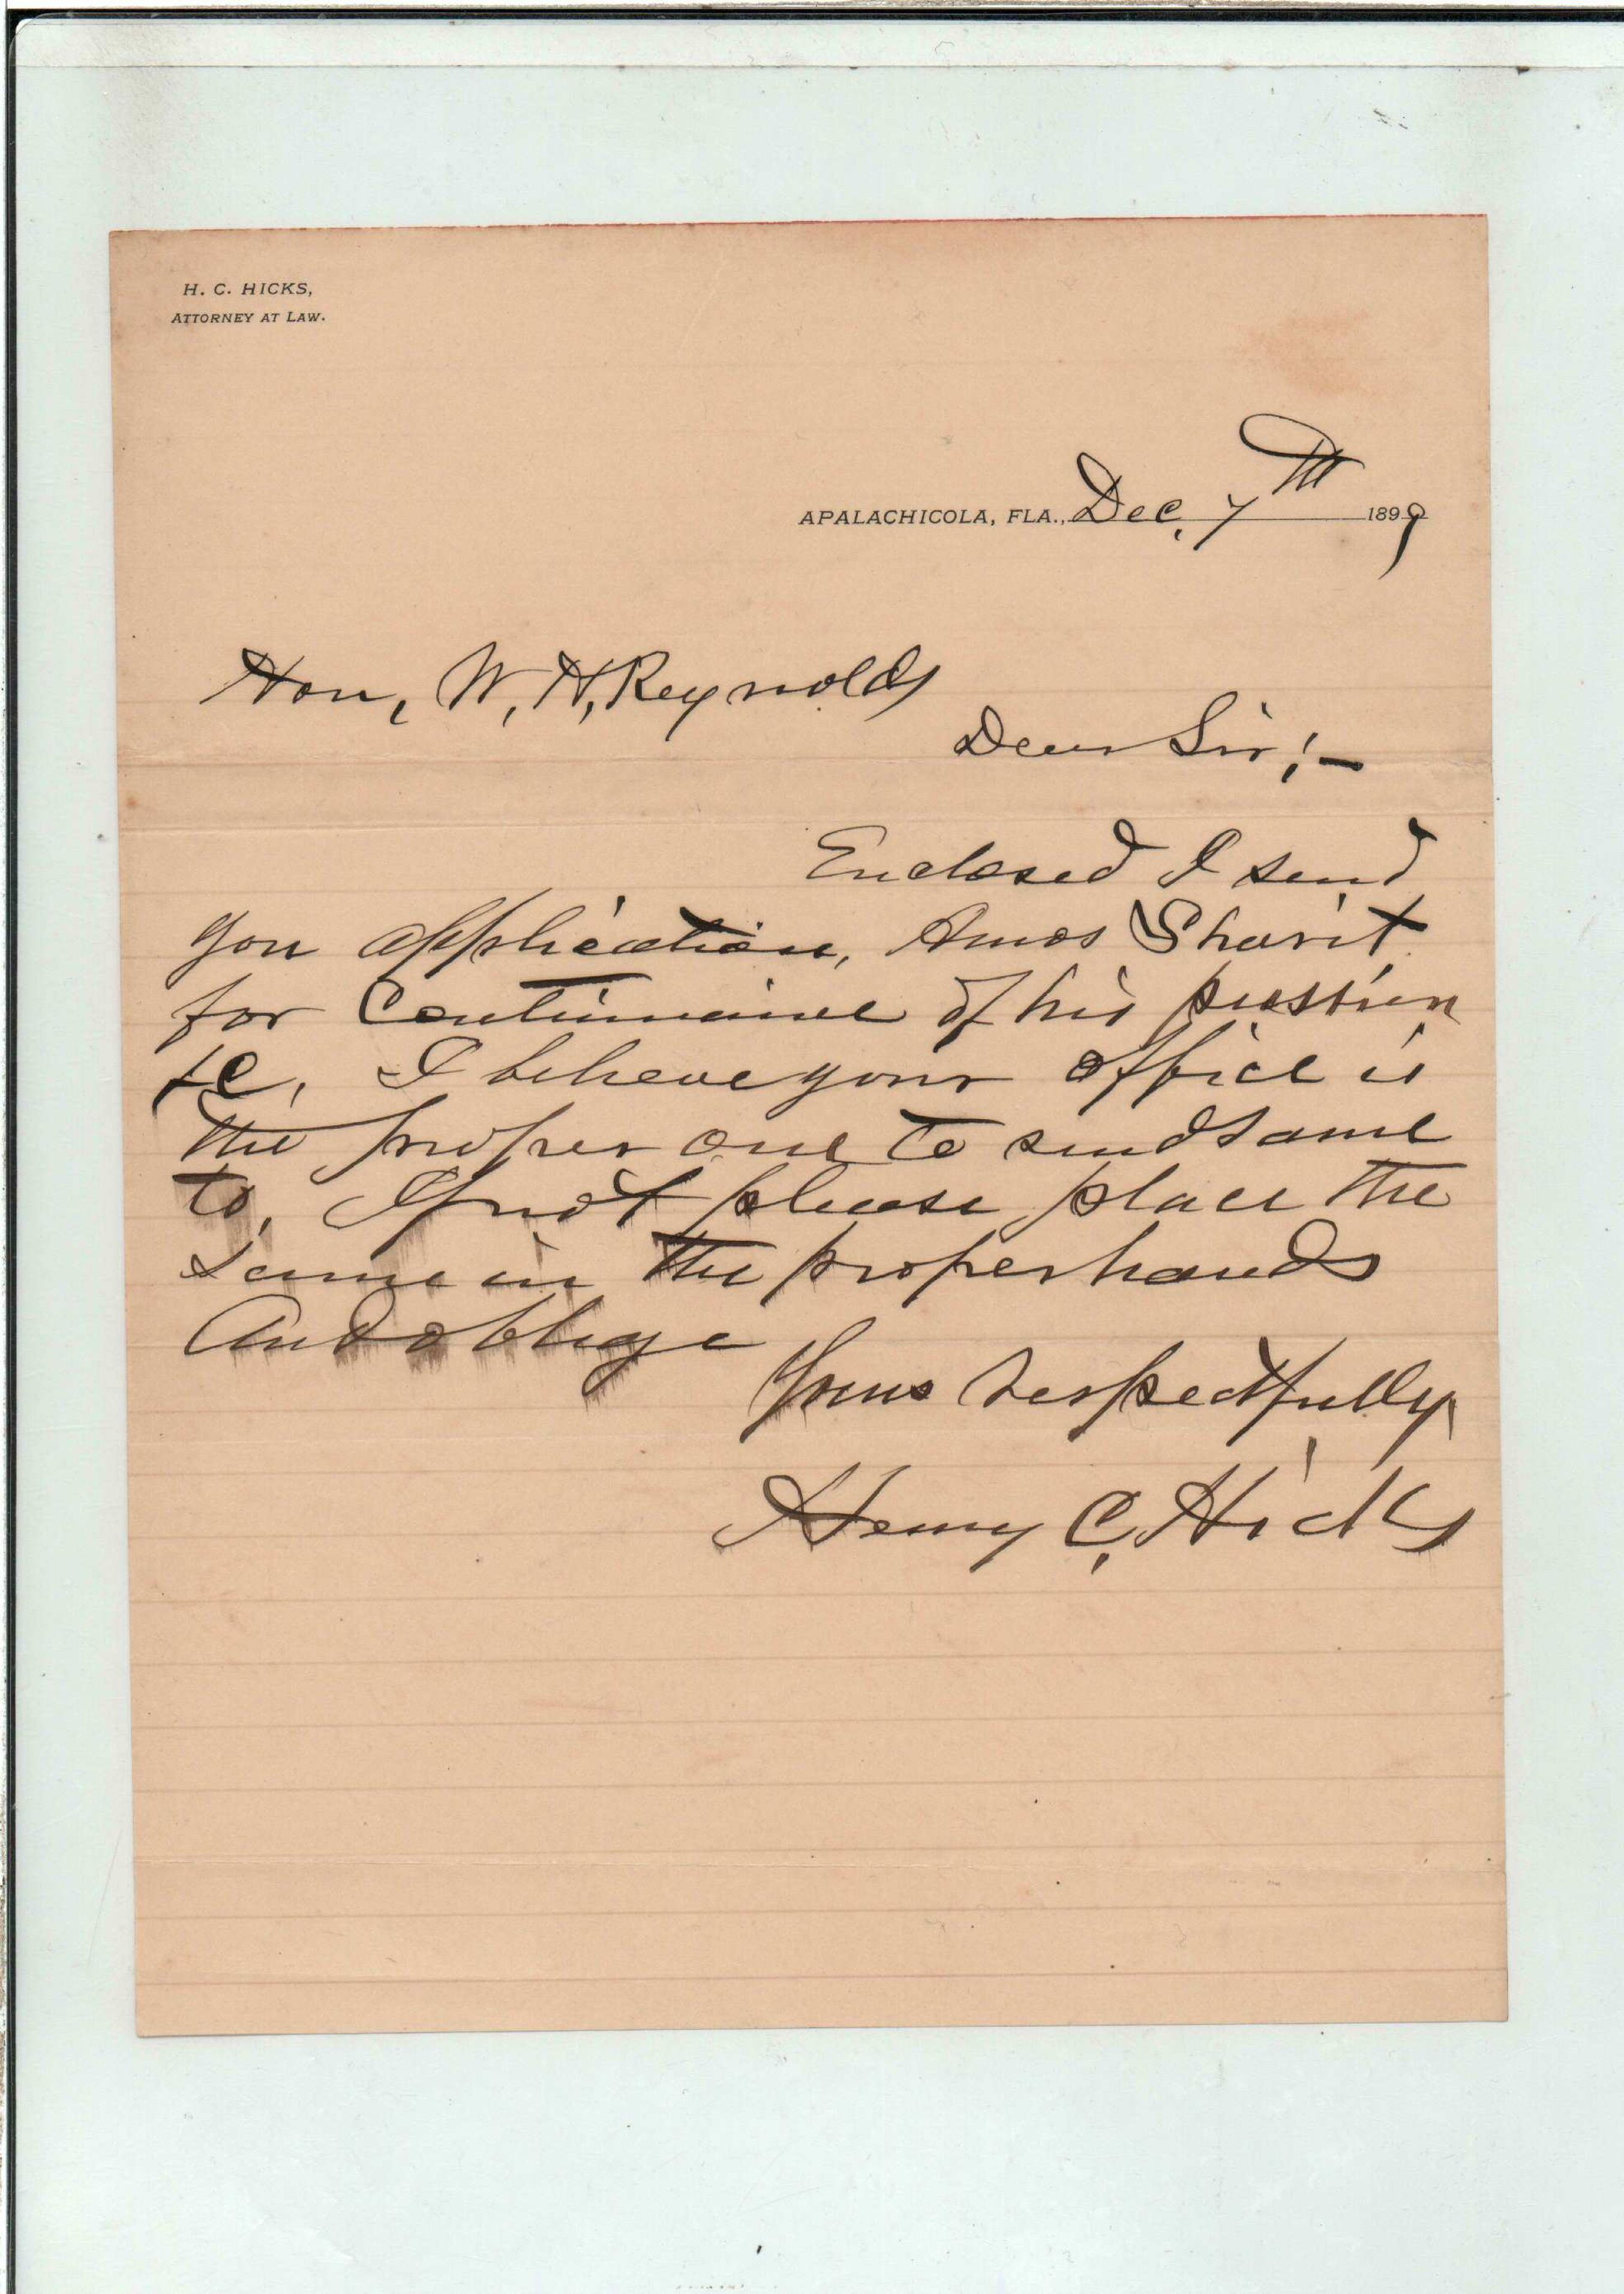 H. C. HICKS,
ATTORNEY AT LAW.
APALACHICOLA, FLA., Dec. 7th 1899
Hon, W, H, Reynolds
Dear Sir;-
Enclosed I send
you application, Amos Sharit
for Continuance of his
&c, I believe your office is
the proper one to send same
to, If not please place the
same in the proper hands
And oblige
Yours respectfully
Henry C, Hicks